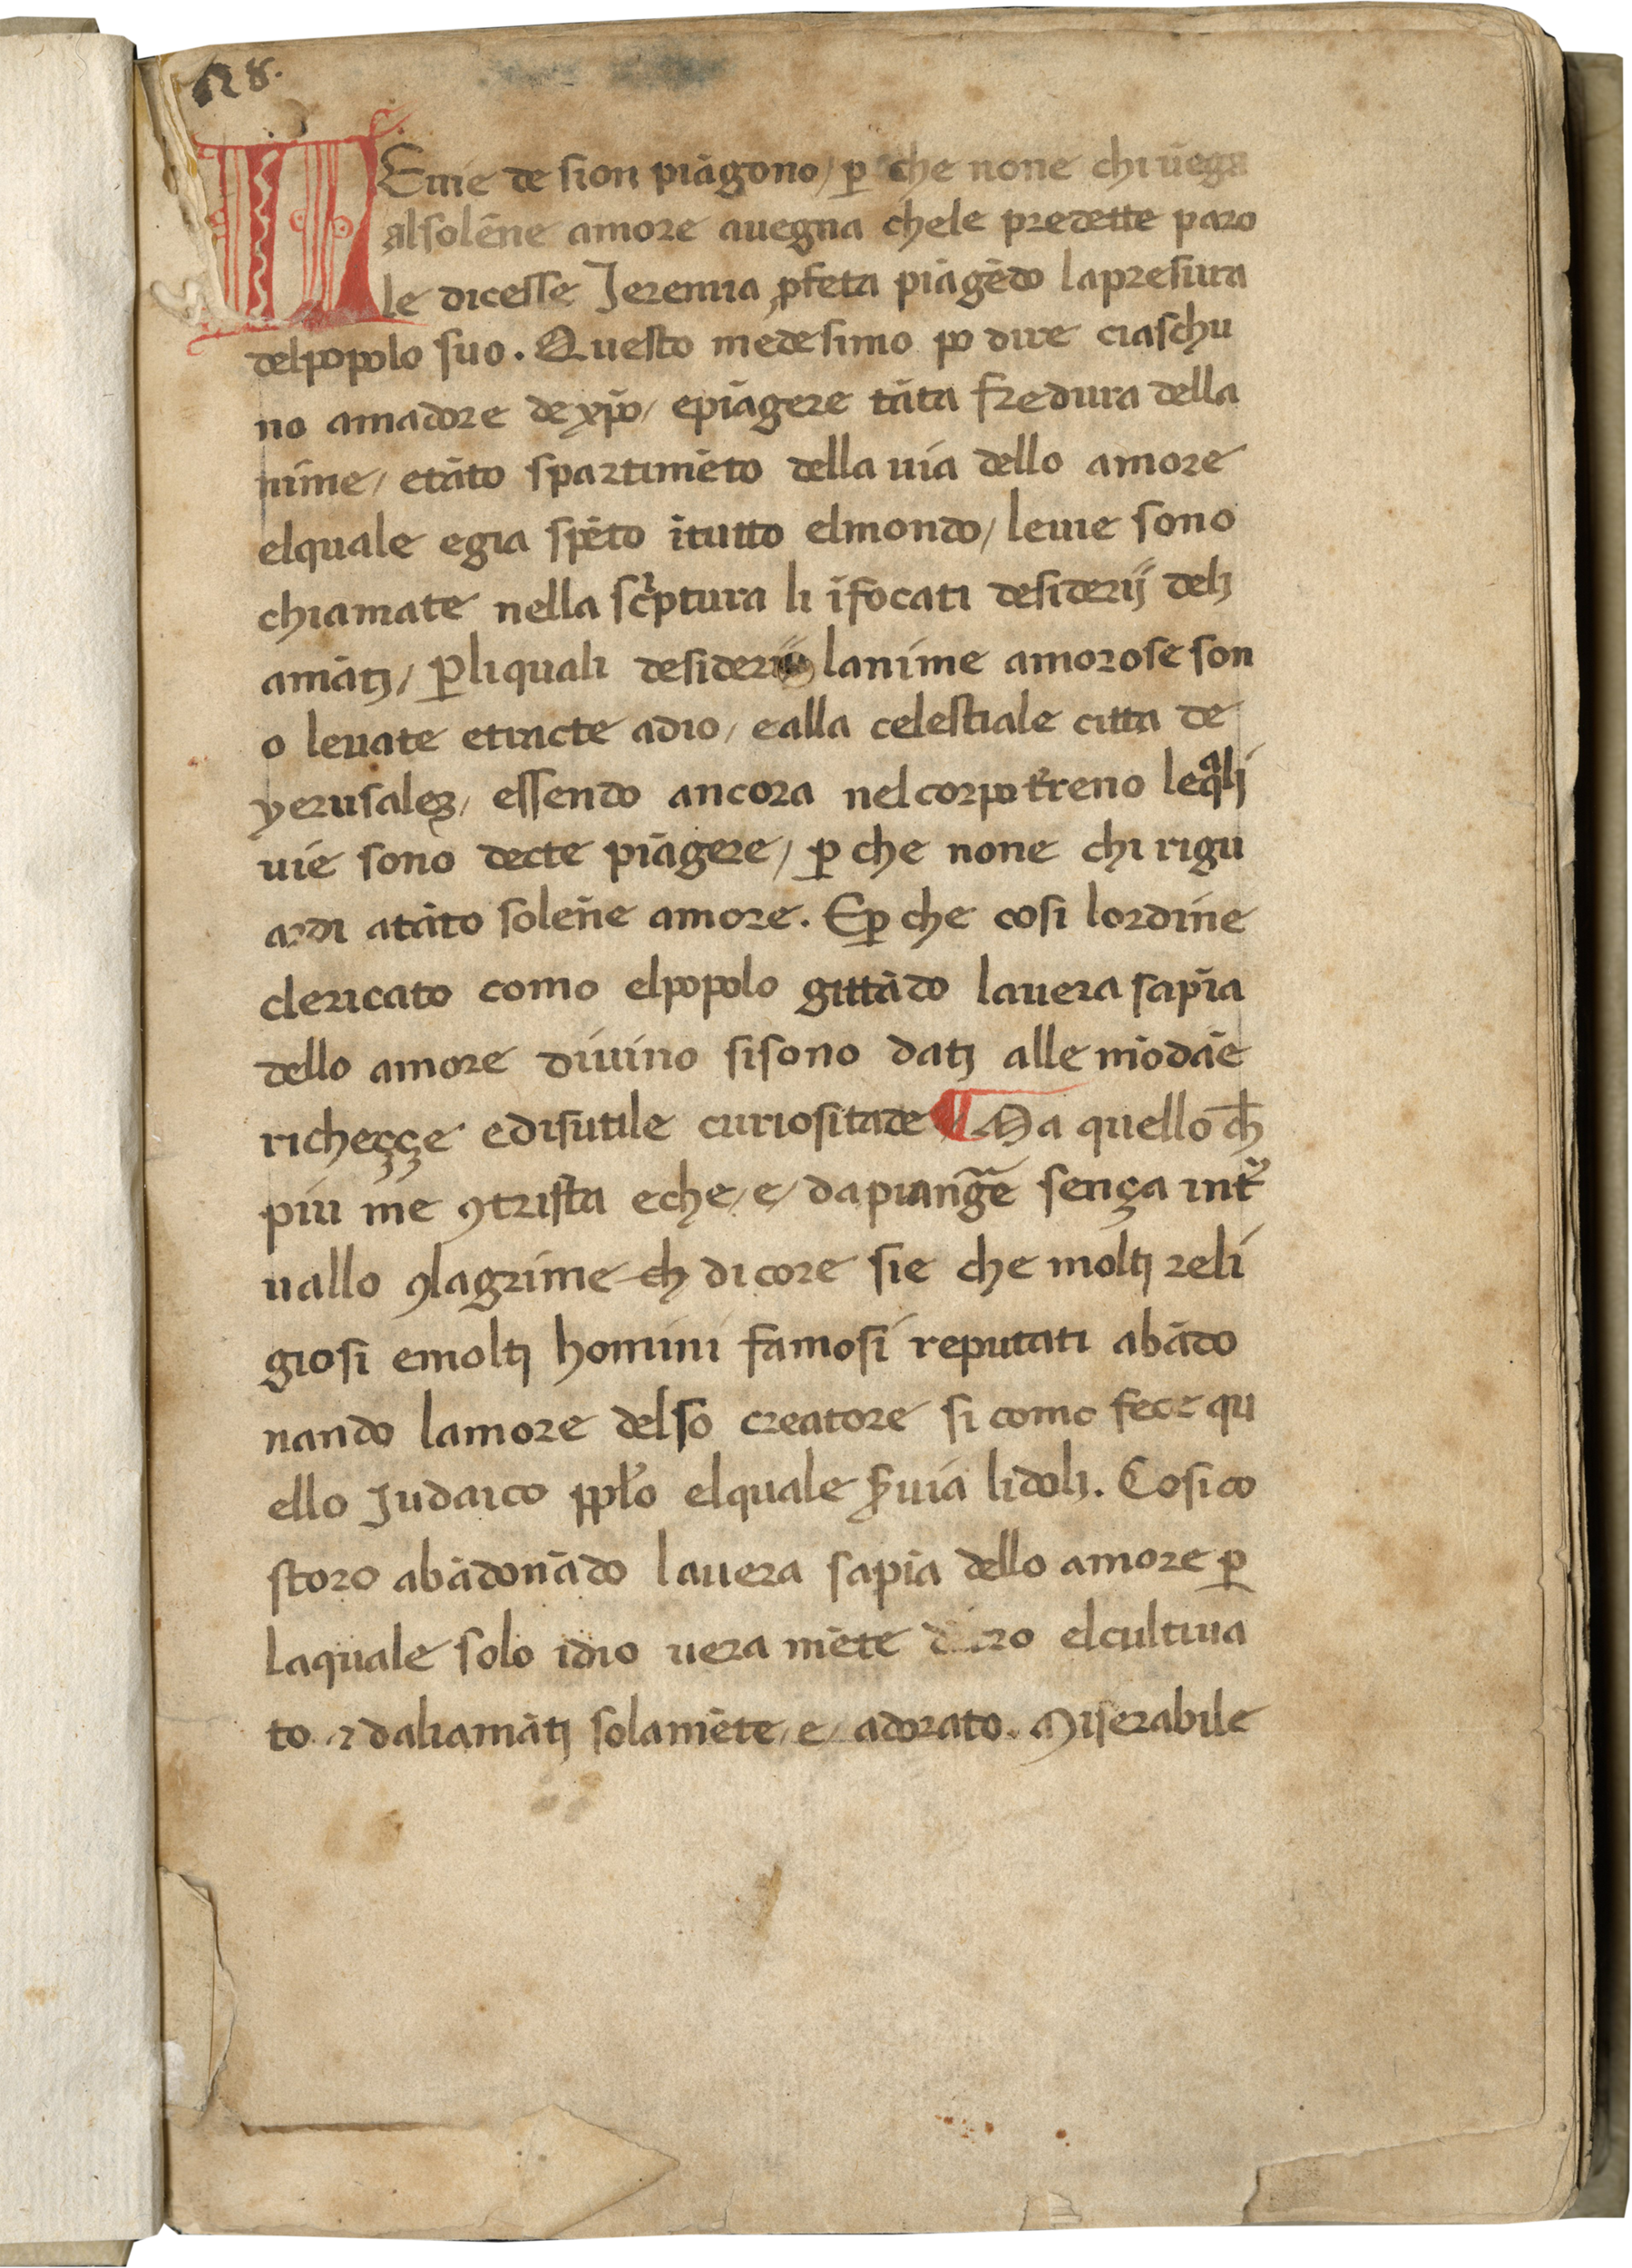 128.
LEuie de sion piāgono/ ꝑ che none chi uēga
alsolēne amore auegna chele predette paro
le dicesse Jeremia ꝓfeta piāgēdo lapresura
delpopolo suo. Questo medesimo po dire ciaschu
no amadore de xp̄o/ epiāgere tāta fredura della
nime/ etāto spartimēto della uia dello amore
elquale egia spēto ītutto elmondo/ leuie sono
chiamate nella sc̓ptura li īfocati desiderij delj
amātj/ ꝑliquali desiderij lanime amorose son
o leuate etracte adio/ ealla celestiale citta de
yerusaleꝫ/ essendo ancora nelcorpo t̓reno leqᵃlj
uie sono decte piāgere/ ꝑ che none chi rigu
ardi atāto solēne amore. Eꝑ che cosi lordine
clericato como elpopolo gittādo lauera sapīa
dello amore diuino sisono datj alle mōdāe
richeççe edisutile curiositade ¶ Ma quello cħ
piu me ꝯtrista eche/e/ dapianḡe sença int̓
uallo ꝯlagrime cħ dicore sie che moltj reli
giosi emoltj homini famosi reputati abādo
nando lamore delso creatore si como fece qu
ello Judaico ppl̓o elquale s̓uia lidolj. Cosi co
storo abādonādo lauera sapīa dello amore ꝑ
laquale solo idio uera mēte elcultiua
to ⁊ daliamātj solamēte/e/ adorato. Miserabile